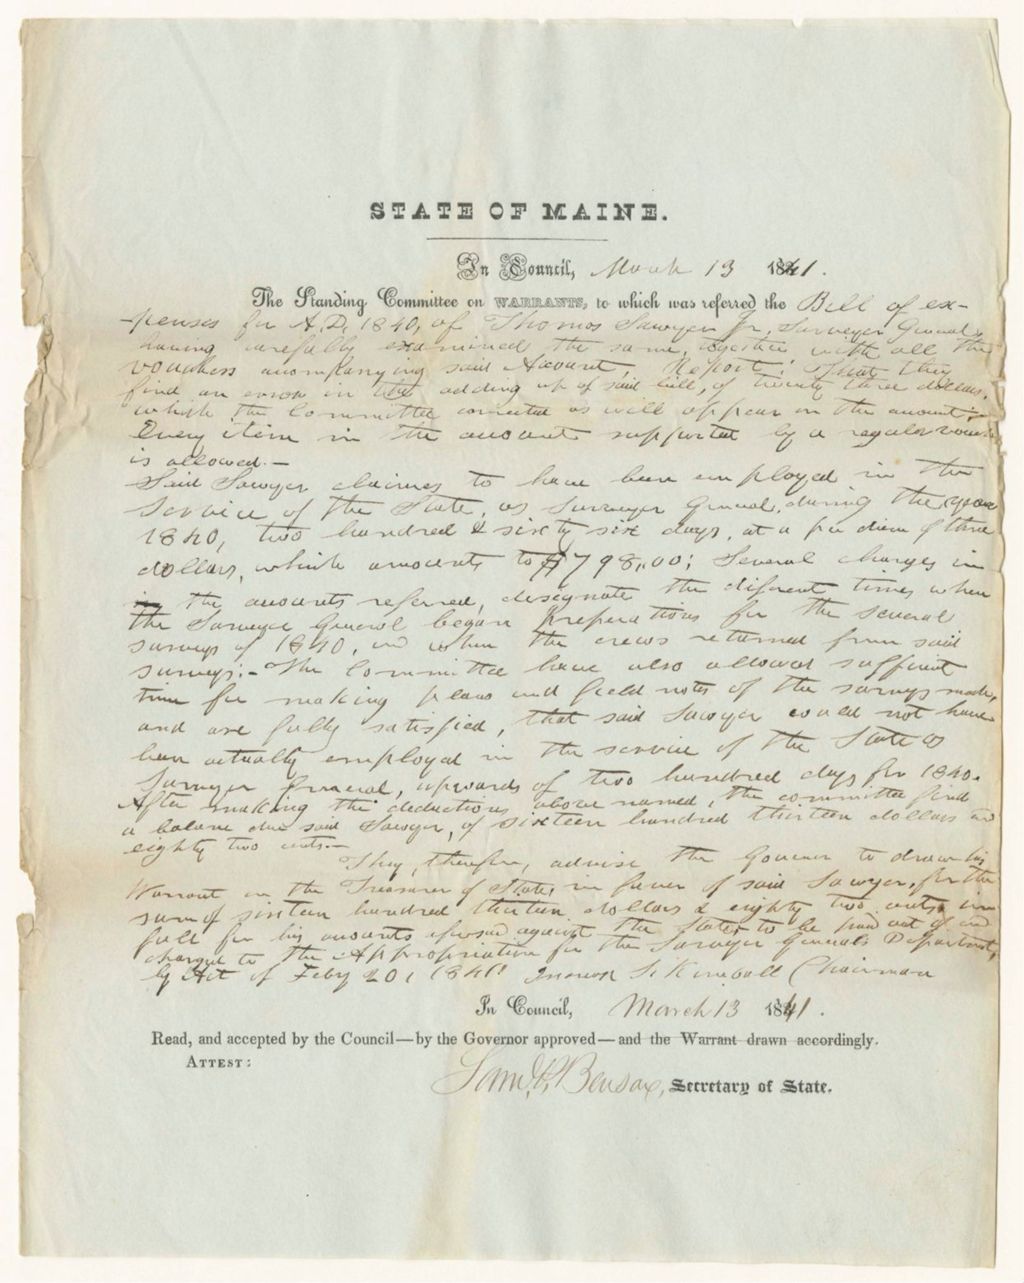 STATE OF MAINE.
In Council, March 13 1841.
The Standing Committee on WARRANTS, to which was referred the Bill of ex-
-penses for A.D. 1840, of Thomas Sawyer Jr, Surveyor General,
having carefully examined the same, together with all the
vouchers accompanying said Account, Report; That they
find an error in the adding up of said bill, of twenty three dollars,
which the Committee corrected as will appear on the account.
Every item in the account supported by a regular voucher
is allowed.—
Said Sawyer claimes to have been employed in the
Service of the State, as Surveyor General, during the year
1840, two hundred & sixty six days, at a per diem of three
dollars, which amounts to $798,00; Several charges in
the accounts referred, designate the diferent times when
the Surveyor General began preperations for the several
surveys of 1840, and when the crews returned from said
surveys;— The Committee have also allowed sufficient
time for making plans and field notes of the surveys made,
and are fully satisfied, that said Sawyer could not have
been actually employed in the service of the State as
Surveyor General, upwards of two hundred days for 1840.
After making the deductions above named, the committee find
a balance due said Sawyer, of sixteen hundred thirteen dollars and
eighty two cents.—
They, therefore, advise the Governor to draw his
Warrant on the Treasurer of State, in favor of said Sawyer, for the
sum of sixteen hundred thirteen dollars & eighty two cents, in
full for his accounts aforesaid against the State, to be paid out of and
charged to the Appropriation for the Surveyor General's Department,
by Act of Feby 20, 1841 S. Kimball Chairman
In Council, March 13 1841.
Read, and accepted by the Council—by the Governor approved—and the Warrant drawn accordingly.
ATTEST:
Saml. P. Benson, Secretary of State.